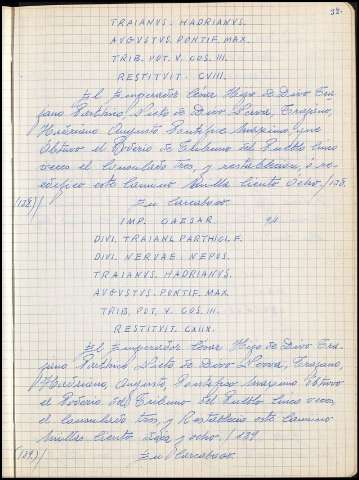 32.
TRAIANVS. HADRIANVS.
AVGVSTVS. PONTIF. MAX.
TRIB. POT. V. COS. III.
RESTITVIT. CVIII.
El Emperador César Hijo de Divo Tra-
jano Parthico, Nieto de Divo Nerva, Trajano,
Hadriano Augusto Pontifice Maximo, que
Obtuvo el Poderio de Tribuno del Pueblo cinco
veces el Consulado tres, y restableció, ó re-
edifico este Camino Milla Ciento Ocho. / 138.
(138) / En Carcaboso
IMP. CAESAR
DIVI. TRAIANI. PARTHICI. F.
DIVI. NERVAE. NEPOS.
TRAIANVS. HADRIANVS.
AVGVSTVS. PONTIF. MAX.
TRIB. POT. V. COS. III.
RESTITVIT. CXIIX.
El Emperador César Hijo de Divo Tra-
jano Parthico Nieto de Divo Nerva, Trajano,
Hadriano, Augusto, Pontifice Maximo Obtuvo
el Poderio del Tribuno del Pueblo Cinco veces,
el Consulado tres, y Restableció este Camino
Millas Ciento diez y ocho. / 139.
(139) / En Carcaboso.